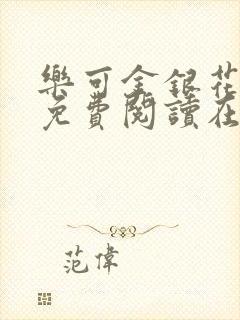 樂可金銀花
免費閱讀在
范偉